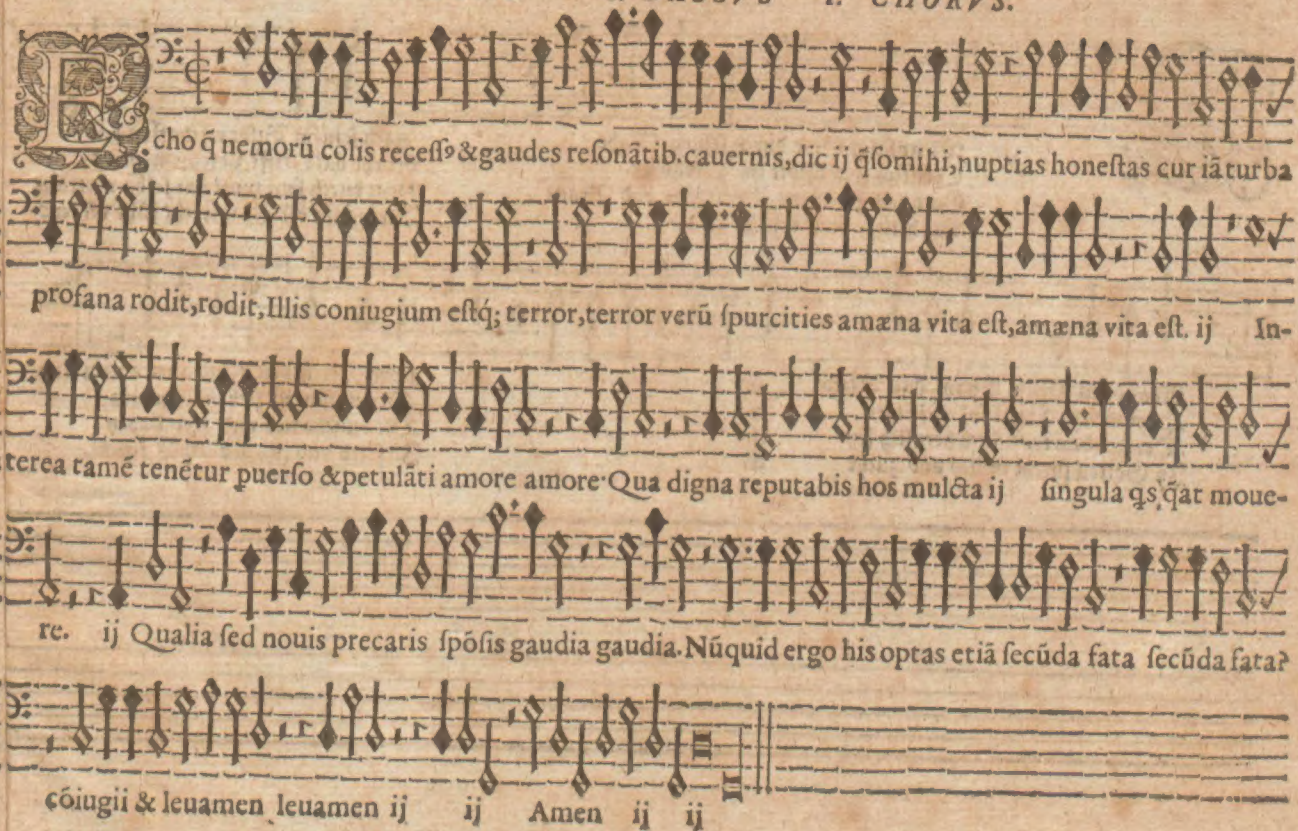 1. CHORVS.
Echo q̃ nemorũ colis receſſꝰ &gaudes reſonãtib. cauernis, dic ij q̃ſomihi, nuptias honeſtas cur iã turba
profana rodit, rodit, Illis coniugium eſtq́; terror, terror verũ ſpurcities amæna vita eſt, amæna vita eſt. ij In-
terea tamẽ tenẽtur ꝑuerſo &petulãti amore amore. Qua digna reputabis hos mulcta ij ſingula q̃at moue-
re. ij Qualia ſed nouis precaris ſpõſis gaudia gaudia. Nũquid ergo his optas etiã ſecũda fata ſecũda fata?
cõiugii & leuamen leuamen ij ij Amen ij ij